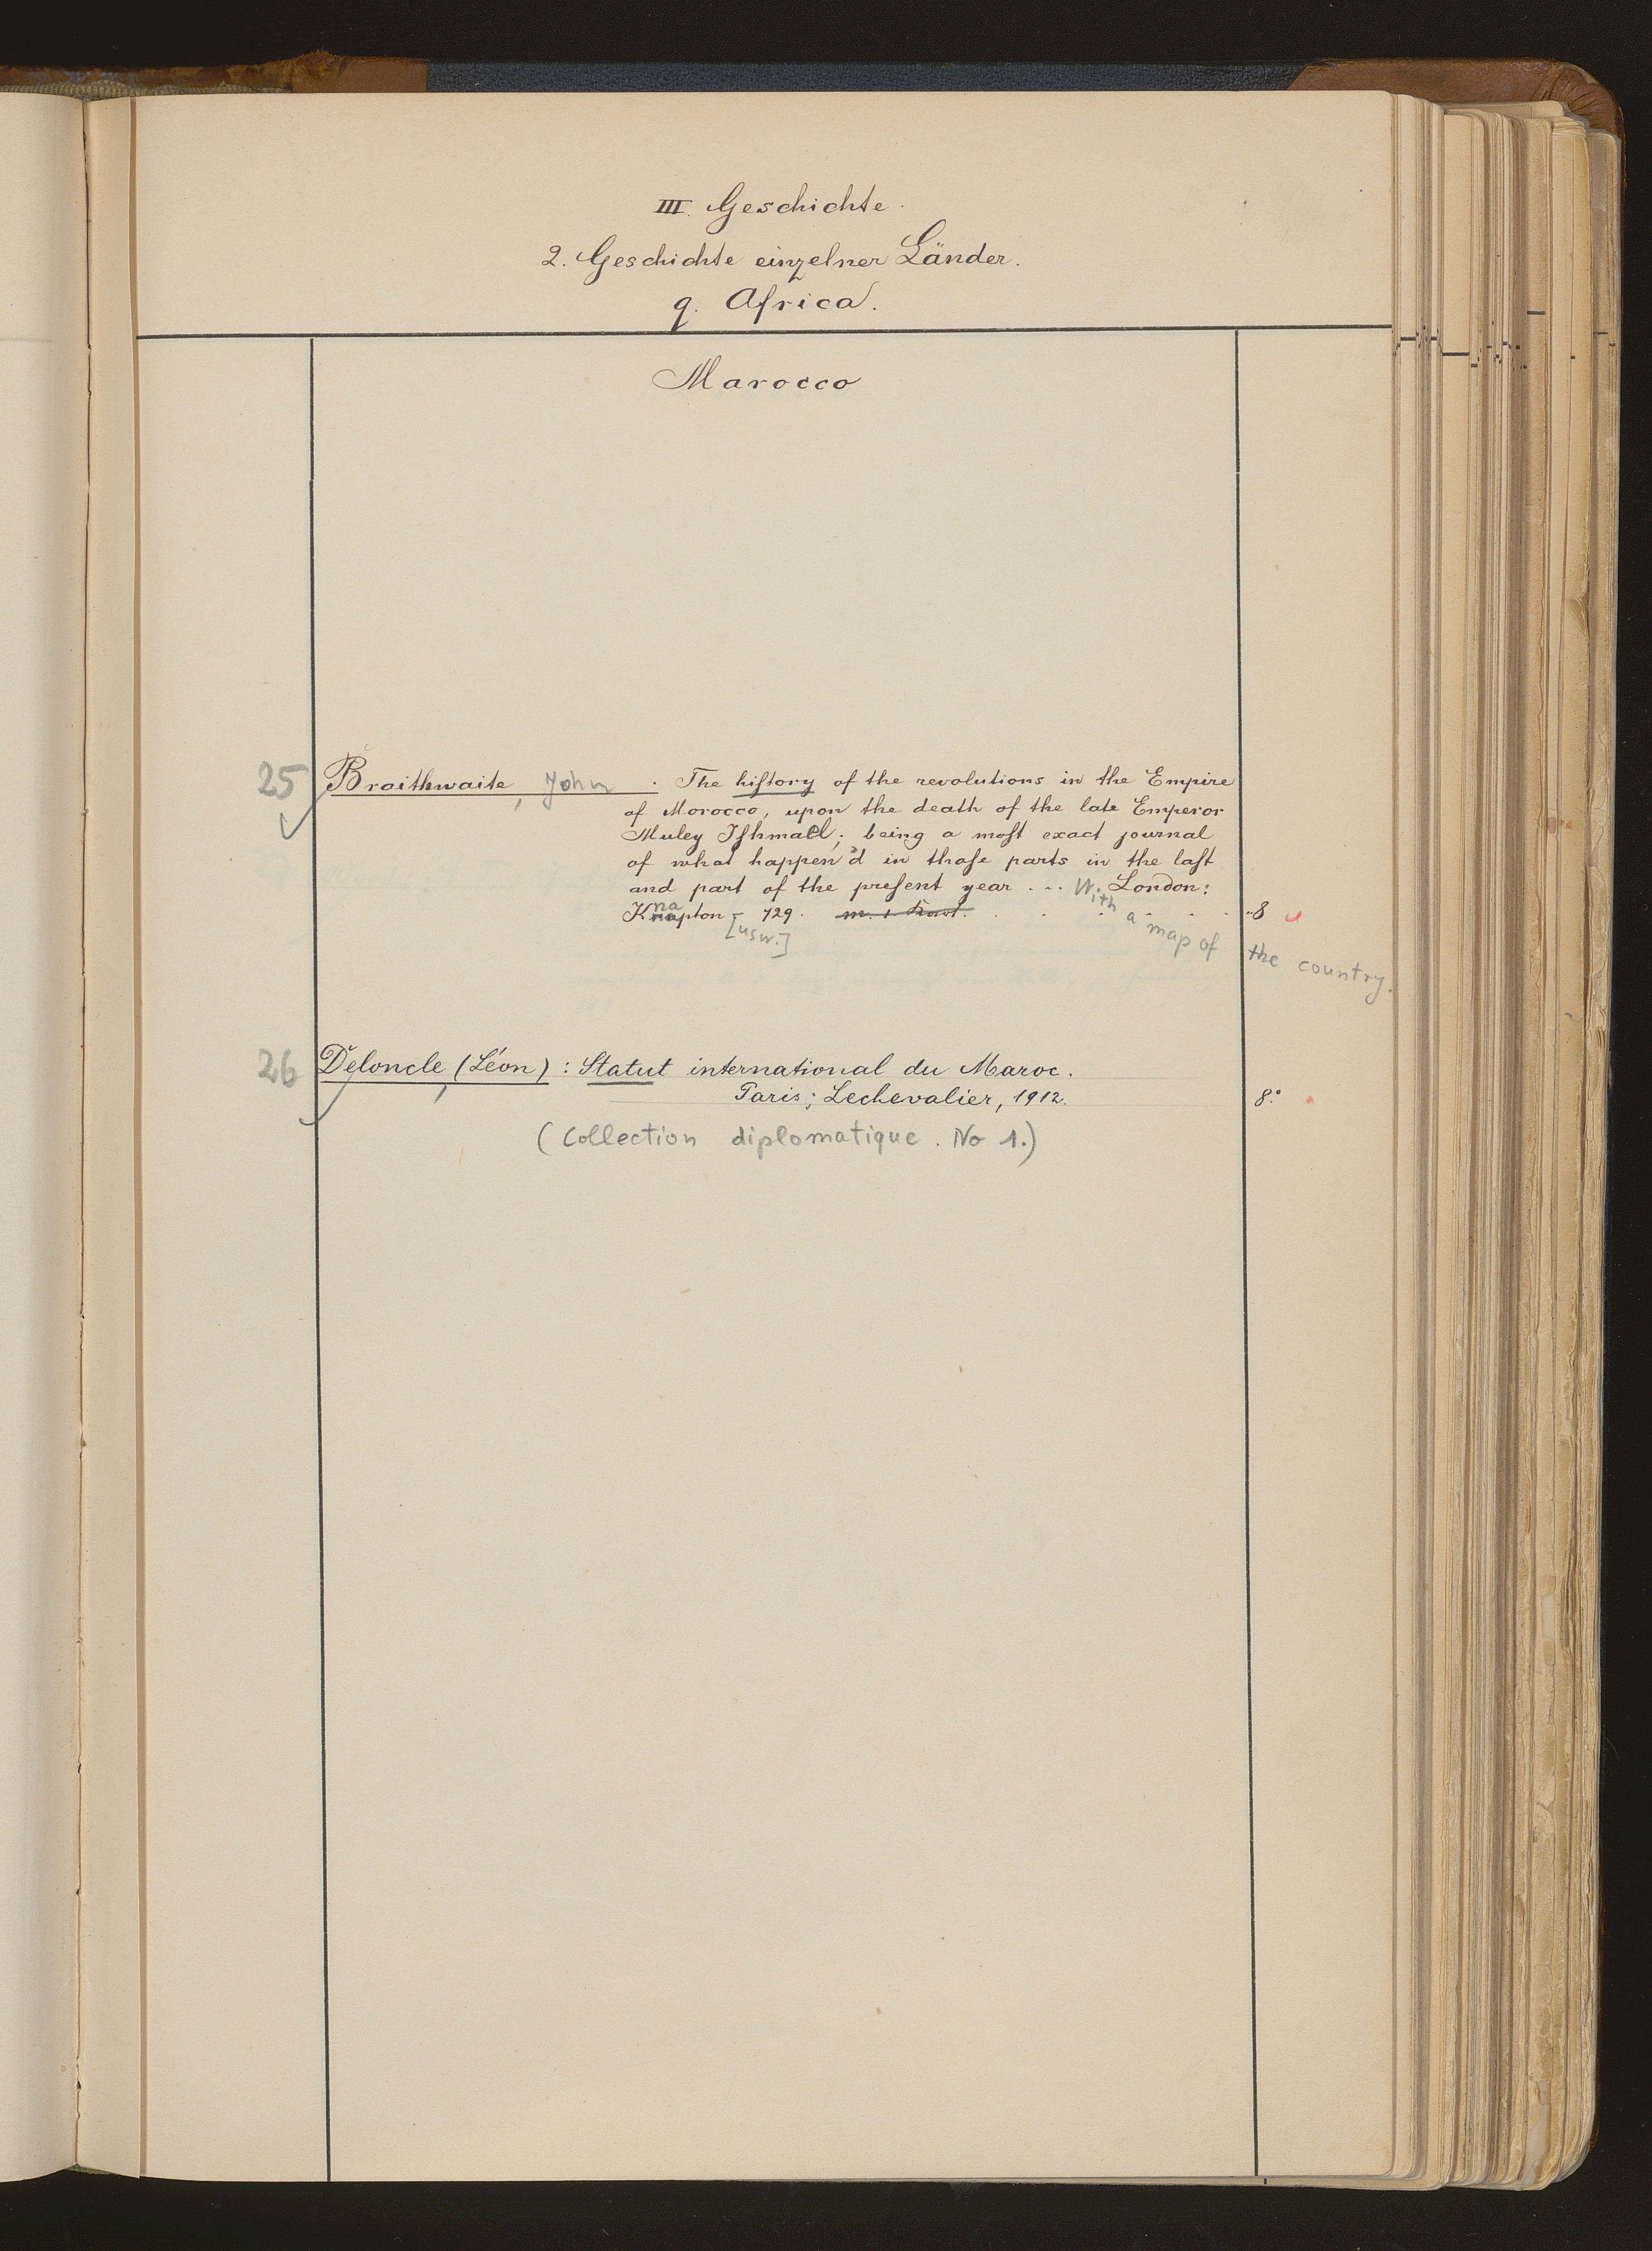 III. Geschichte.
2. Geschichte einzelner Länder.
q. Africa.
Marocco
25 Braithwaite, John : The hiſtory of the revolutions in the Empire
of Morocco, upon the death of the late Emperor
Muley Iſhmael; being a moſt exact journal
of what happen'd in thoſe parts in the laſt
and part of the preſent year ... With a map of the country. London:
Knapton [usw.] 729. 8
26 Deloncle, (Léon) : Statut international du Maroc.
Paris; Lechevalier, 1912. 8°
(Collection diplomatique. No 1.)